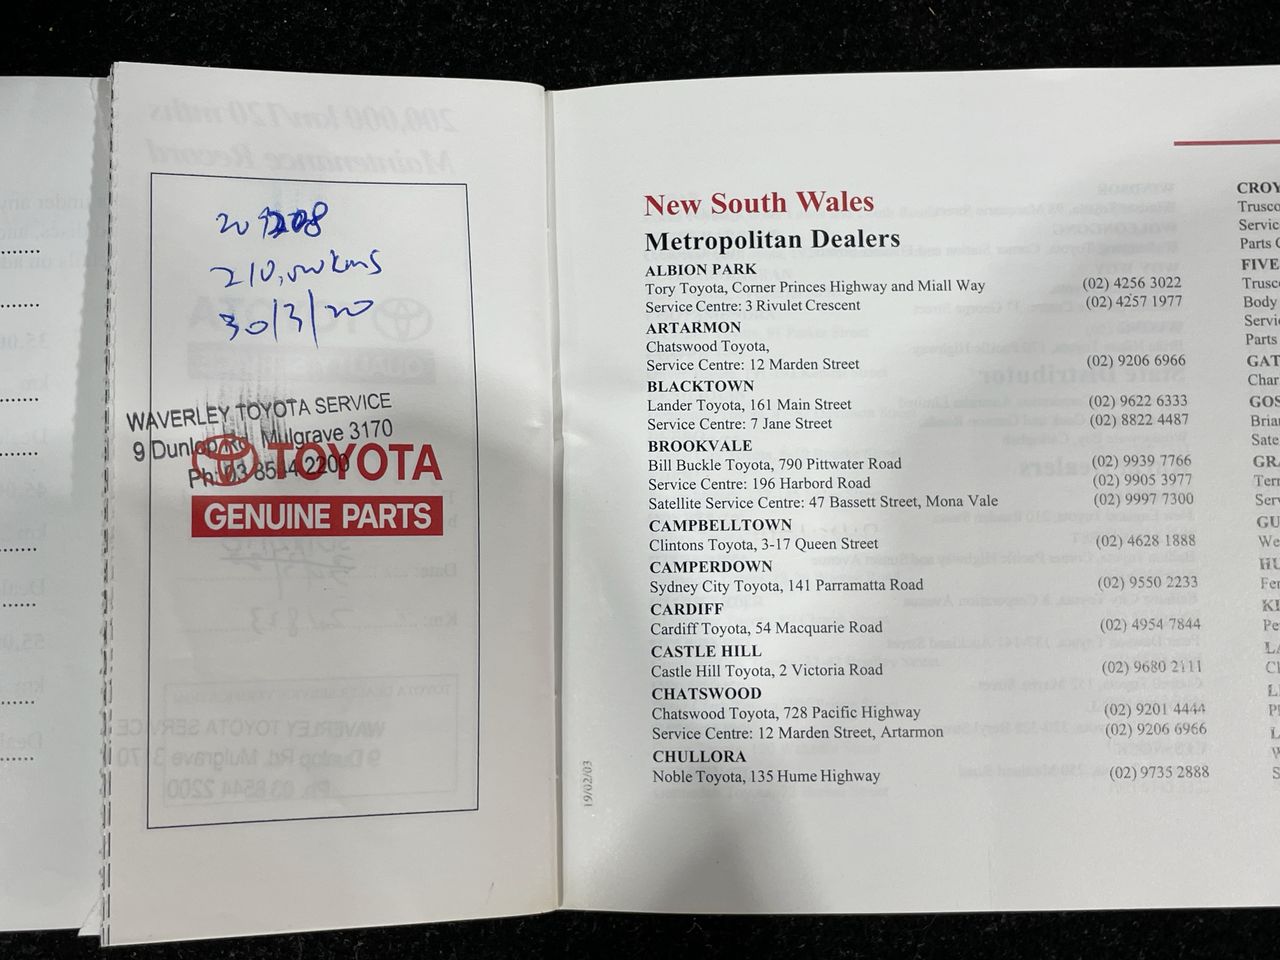 210,000 kms
30/3/20
WAVERLEY TOYOTA SERVICE
9 Dunlop Rd, Mulgrave 3170
Ph: 03 8544 2200
TOYOTA
GENUINE PARTS
19/02/03
New South Wales
Metropolitan Dealers
ALBION PARK
Tory Toyota, Corner Princes Highway and Miall Way (02) 4256 3022
Service Centre: 3 Rivulet Crescent (02) 4257 1977
ARTARMON
Chatswood Toyota,
Service Centre: 12 Marden Street (02) 9206 6966
BLACKTOWN
Lander Toyota, 161 Main Street (02) 9622 6333
Service Centre: 7 Jane Street (02) 8822 4487
BROOKVALE
Bill Buckle Toyota, 790 Pittwater Road (02) 9939 7766
Service Centre: 196 Harbord Road (02) 9905 3977
Satellite Service Centre: 47 Bassett Street, Mona Vale (02) 9997 7300
CAMPBELLTOWN
Clintons Toyota, 3-17 Queen Street (02) 4628 1888
CAMPERDOWN
Sydney City Toyota, 141 Parramatta Road (02) 9550 2233
CARDIFF
Cardiff Toyota, 54 Macquarie Road (02) 4954 7844
CASTLE HILL
Castle Hill Toyota, 2 Victoria Road (02) 9680 2111
CHATSWOOD
Chatswood Toyota, 728 Pacific Highway (02) 9201 4444
Service Centre: 12 Marden Street, Artarmon (02) 9206 6966
CHULLORA
Noble Toyota, 135 Hume Highway (02) 9735 2888
CROY
Trusco
Service
Parts C
FIVE
Trusc
Body
Servi
Parts
GAT
Char
GOS
Bria
Sate
GRA
Terr
Serv
GU
We
HU
Fer